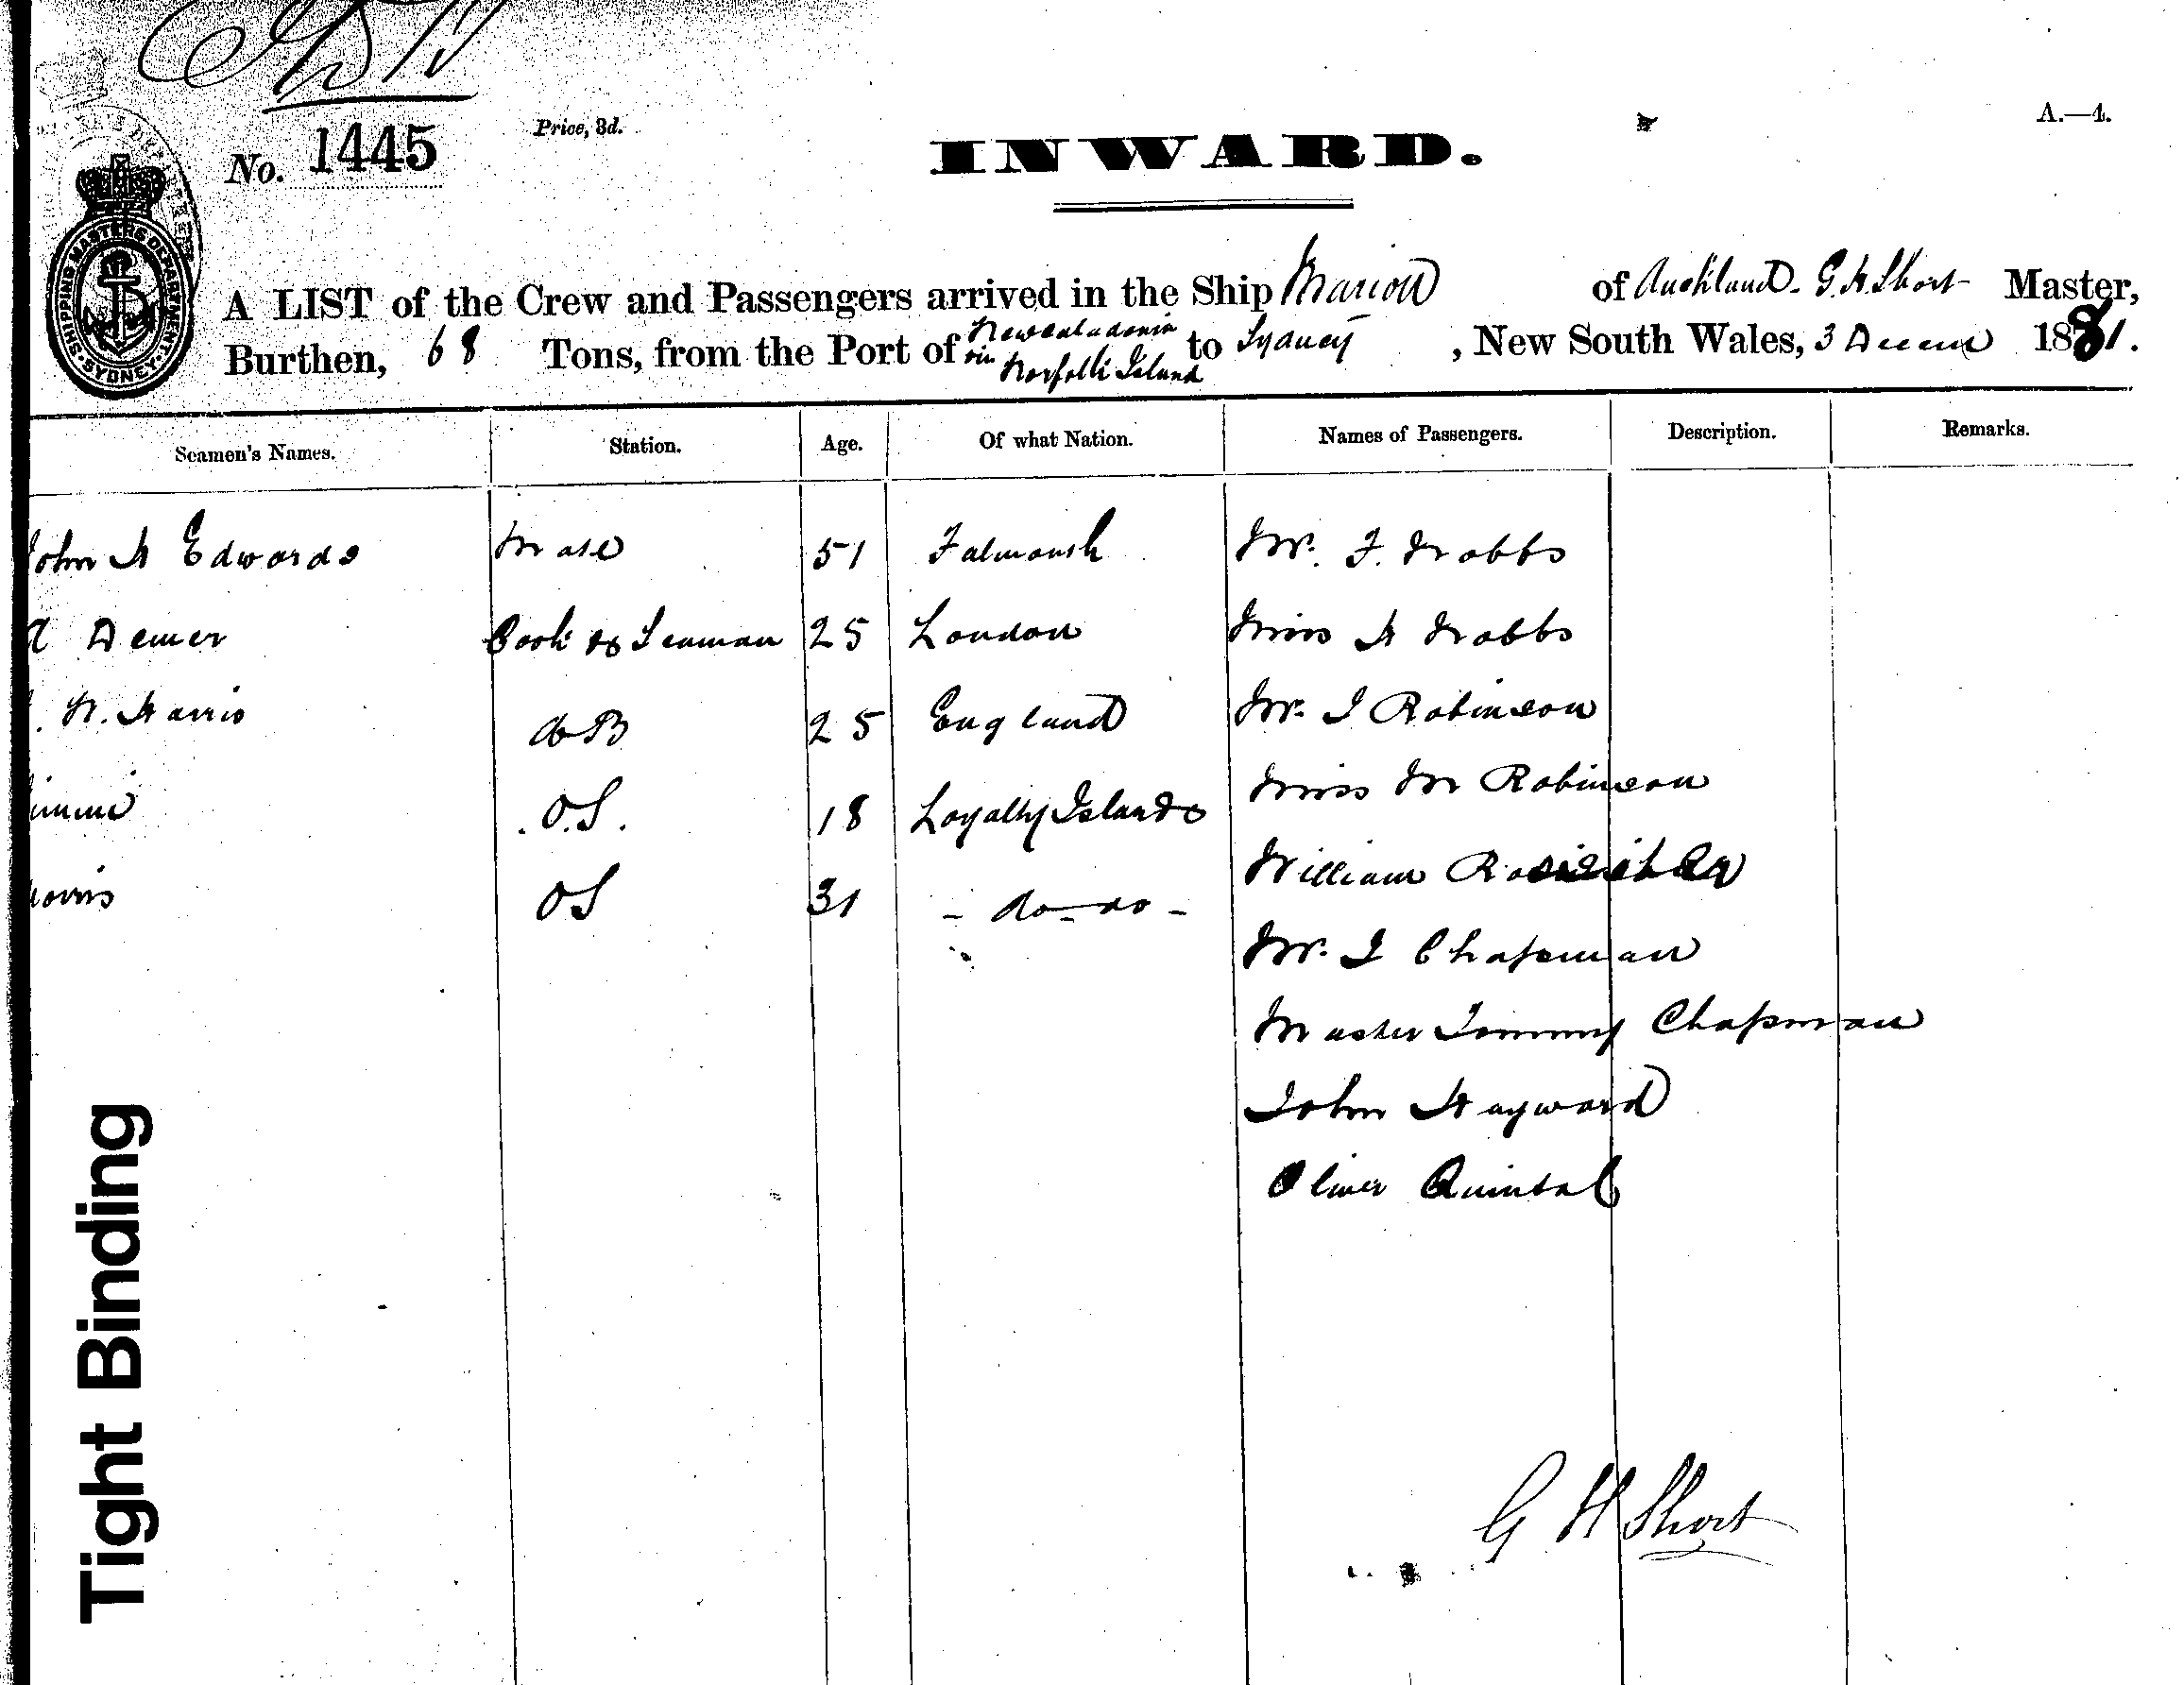 No. 1445
Price, 3d.
INWARD.
A.—4.
SHIPPING MASTERS DEPARTMENT SYDNEY
A LIST of the Crew and Passengers arrived in the Ship Marion of Auckland. G. H. Short Master,
Burthen, 68 Tons, from the Port of New Caledonia via Norfolk Island to Sydney, New South Wales, 3 Decem 1881.
Seamen's Names. Station. Age. Of what Nation. Names of Passengers. Description. Remarks.
John H Edwards Mate 51 Falmouth Mr. F. Nobbs
Demer Cook & Seaman 25 London Miss H Nobbs
Harris AB 25 England Mr. I Robinson
O.S. 18 Loyalty Islands Miss M Robinson
OS 31 - do - do - William
Mr. I Chapman
Master Tommy Chapman
John Hayward
Oliver Quintal
G H Short
Tight Binding